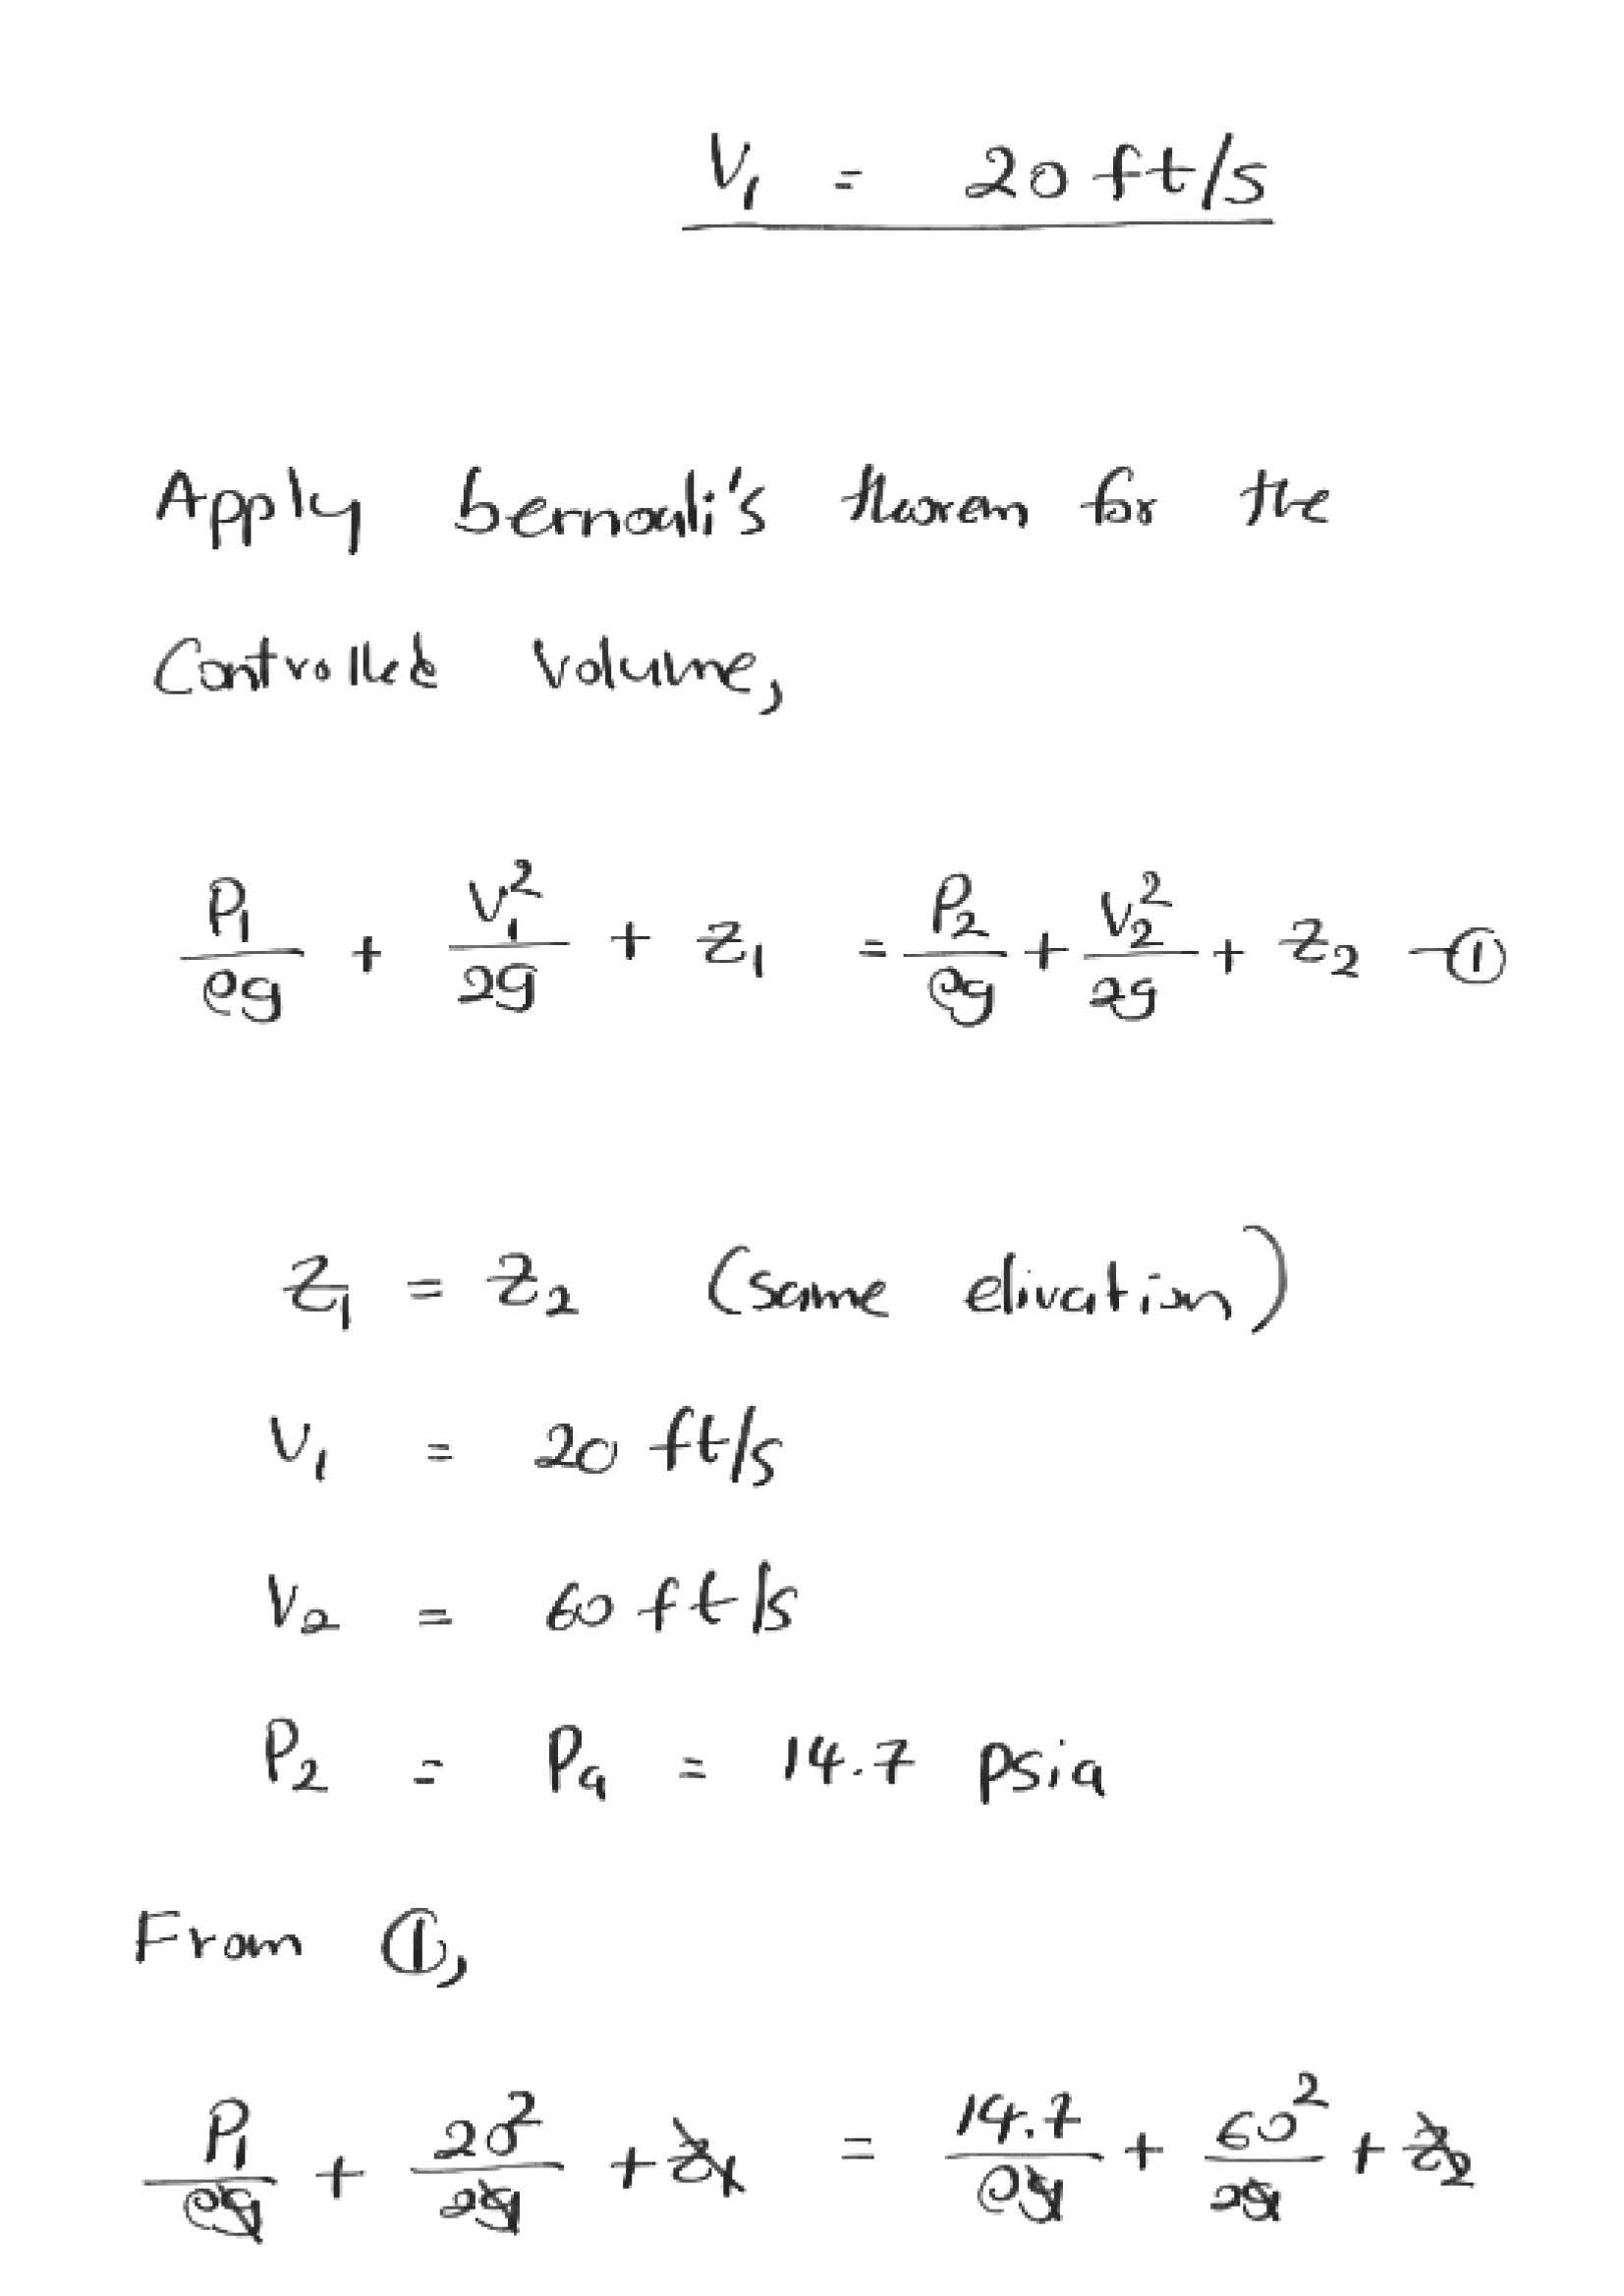 V₁ = 20 ft/s
Apply bernouli's theorem for the
Controlled Volume,
P₁/ρg + V₁²/2g + Z₁ = P₂/ρg + V₂²/2g + Z₂ —①
Z₁ = Z₂ (same elivation)
V₁ = 20 ft/s
V₂ = 60 ft/s
P₂ = Pa = 14.7 psia
From ①,
P₁/ρg + 20²/2g + Z₁ = 14.7/ρg + 60²/2g + Z₂